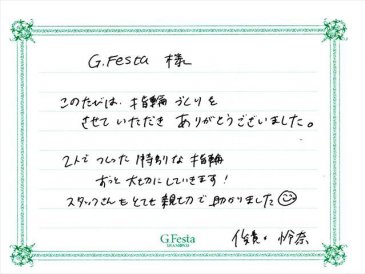 G.Festa 様
このたびは、指輪づくりを
させていただき ありがとうございました。
2人で つくった 特別な 指輪
ずっと 大切に していきます！
スタッフさんも とても 親切で 助かりました
怜奈
G.Festa
DIAMOND